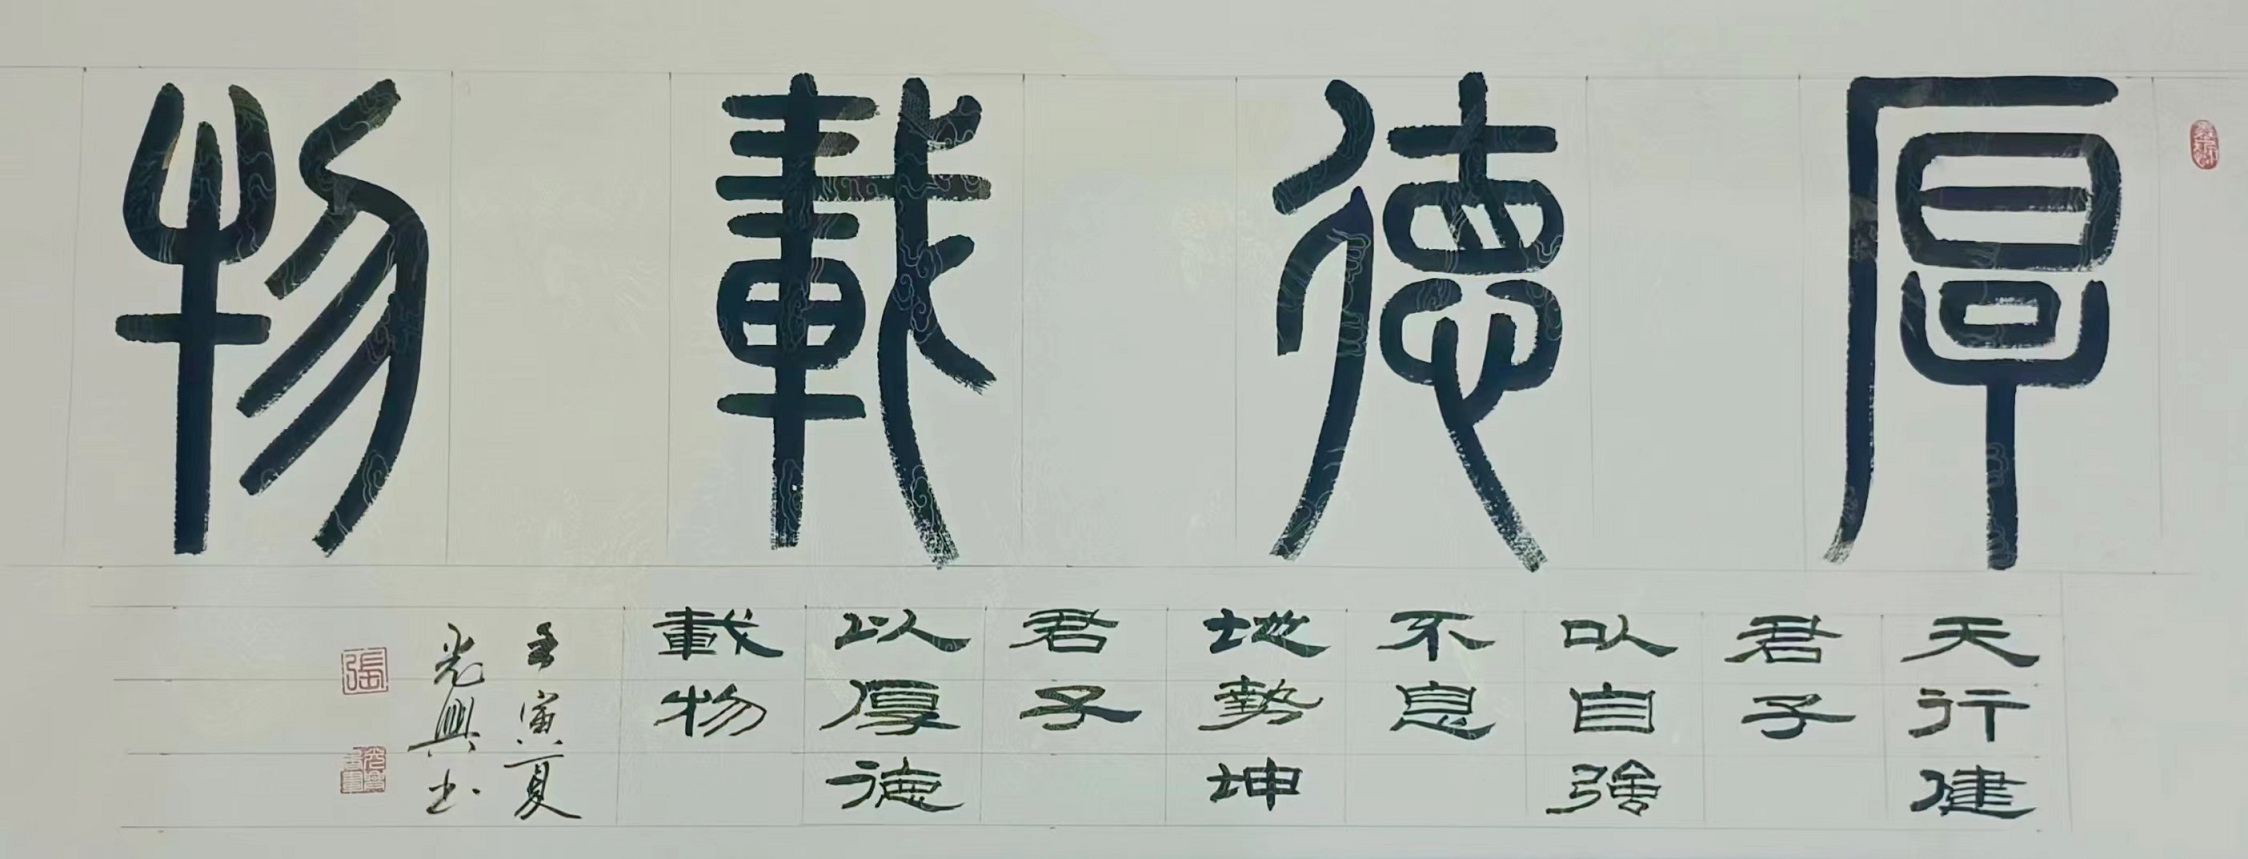 厚德載物
天行健
君子
以自強
不息
地勢坤
君子
以厚德
載物
壬寅夏
光興书
張